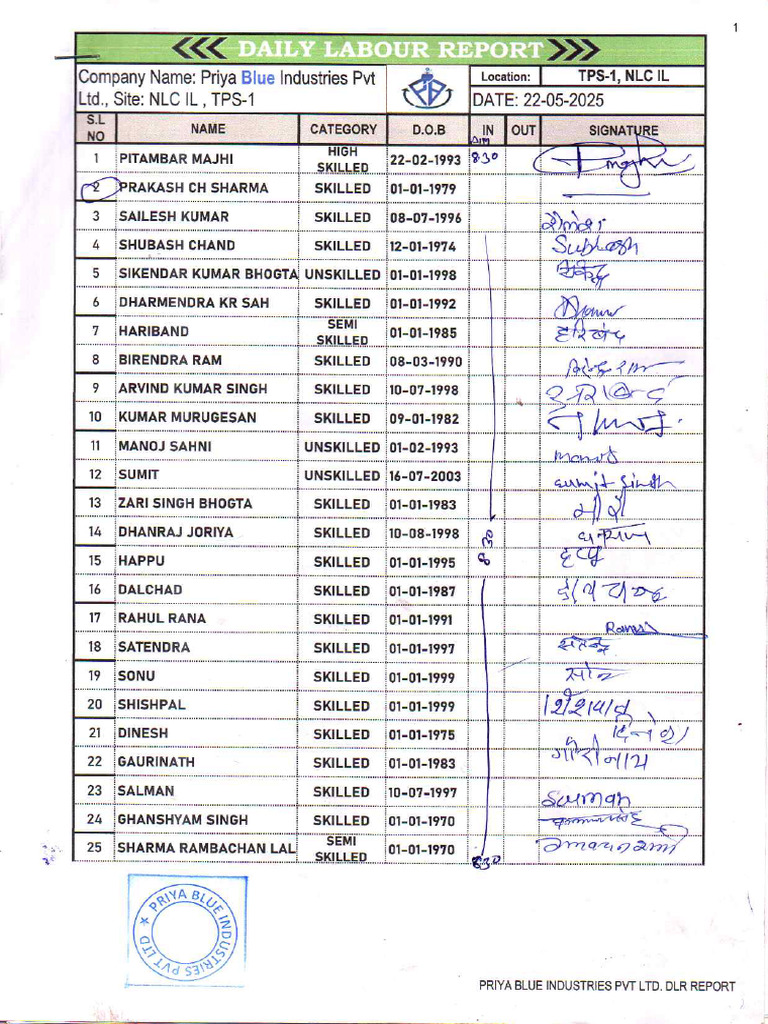 1
DAILY LABOUR REPORT
Company Name: Priya Blue Industries Pvt Ltd., Site: NLC IL , TPS-1
Location: TPS-1, NLC IL
DATE: 22-05-2025
S.L NO NAME CATEGORY D.O.B IN OUT SIGNATURE
1 PITAMBAR MAJHI HIGH SKILLED 22-02-1993 8:30
2 PRAKASH CH SHARMA SKILLED 01-01-1979
3 SAILESH KUMAR SKILLED 08-07-1996
4 SHUBASH CHAND SKILLED 12-01-1974 Subhash
5 SIKENDAR KUMAR BHOGTA UNSKILLED 01-01-1998
6 DHARMENDRA KR SAH SKILLED 01-01-1992
7 HARIBAND SEMI SKILLED 01-01-1985
8 BIRENDRA RAM SKILLED 08-03-1990
9 ARVIND KUMAR SINGH SKILLED 10-07-1998
10 KUMAR MURUGESAN SKILLED 09-01-1982
11 MANOJ SAHNI UNSKILLED 01-02-1993 manoj
12 SUMIT UNSKILLED 16-07-2003 sumit singh
13 ZARI SINGH BHOGTA SKILLED 01-01-1983
14 DHANRAJ JORIYA SKILLED 10-08-1998 8 30
15 HAPPU SKILLED 01-01-1995
16 DALCHAD SKILLED 01-01-1987
17 RAHUL RANA SKILLED 01-01-1991
18 SATENDRA SKILLED 01-01-1997
19 SONU SKILLED 01-01-1999
20 SHISHPAL SKILLED 01-01-1999
21 DINESH SKILLED 01-01-1975 दिनेश
22 GAURINATH SKILLED 01-01-1983 गौरीनाथ
23 SALMAN SKILLED 10-07-1997
24 GHANSHYAM SINGH SKILLED 01-01-1970
25 SHARMA RAMBACHAN LAL SEMI SKILLED 01-01-1970 830
PRIYA BLUE INDUSTRIES PVT LTD
PRIYA BLUE INDUSTRIES PVT LTD. DLR REPORT